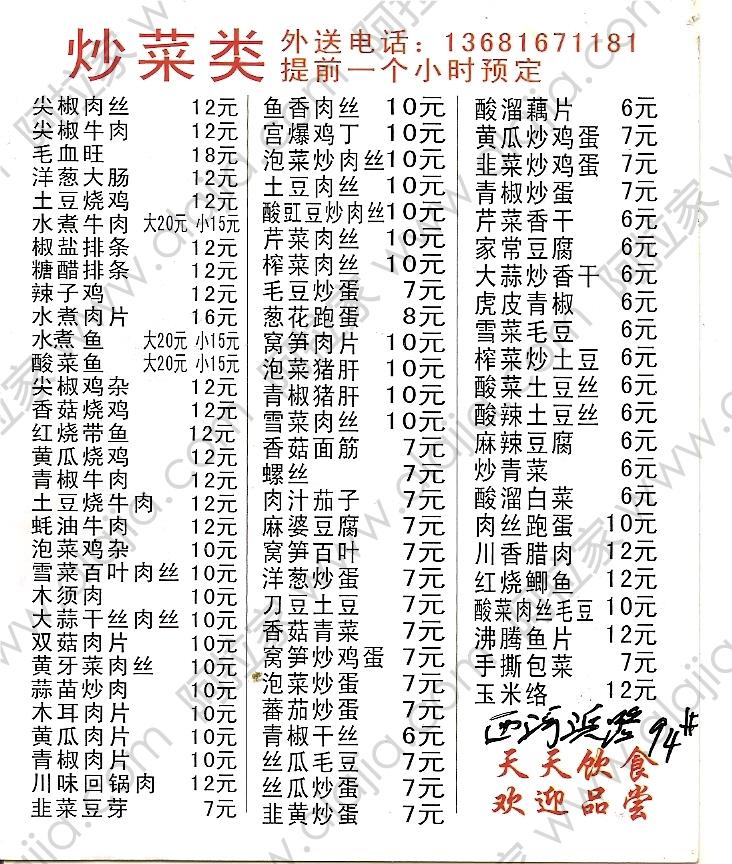 炒菜类
外送电话：13681671181
提前一个小时预定
尖椒肉丝 12元
尖椒牛肉 12元
毛血旺 18元
洋葱大肠 12元
土豆烧鸡 12元
水煮牛肉 大20元 小15元
椒盐排条 12元
糖醋排条 12元
辣子鸡 12元
水煮肉片 16元
水煮鱼 大20元 小15元
酸菜鱼 大20元 小15元
尖椒鸡杂 12元
香菇烧鸡 12元
红烧带鱼 12元
黄瓜烧鸡 12元
青椒牛肉 12元
土豆烧牛肉 12元
蚝油牛肉 12元
泡菜鸡杂 10元
雪菜百叶肉丝 10元
木须肉 10元
大蒜干丝肉丝 10元
双菇肉片 10元
黄牙菜肉丝 10元
蒜苗炒肉 10元
木耳肉片 10元
黄瓜肉片 10元
青椒肉片 10元
川味回锅肉 12元
韭菜豆芽 7元
鱼香肉丝 10元
宫爆鸡丁 10元
泡菜炒肉丝 10元
土豆肉丝 10元
酸豇豆炒肉丝 10元
芹菜肉丝 10元
榨菜肉丝 10元
毛豆炒蛋 7元
葱花跑蛋 8元
窝笋肉片 10元
泡菜猪肝 10元
青椒猪肝 10元
雪菜肉丝 10元
香菇面筋 7元
螺丝 7元
肉汁茄子 7元
麻婆豆腐 7元
窝笋百叶 7元
洋葱炒蛋 7元
刀豆土豆 7元
香菇青菜 7元
窝笋炒鸡蛋 7元
泡菜炒蛋 7元
蕃茄炒蛋 7元
青椒干丝 6元
丝瓜毛豆 7元
丝瓜炒蛋 7元
韭黄炒蛋 7元
酸溜藕片 6元
黄瓜炒鸡蛋 7元
韭菜炒鸡蛋 7元
青椒炒蛋 7元
芹菜香干 6元
家常豆腐 6元
大蒜炒香干 6元
虎皮青椒 6元
雪菜毛豆 6元
榨菜炒土豆 6元
酸菜土豆丝 6元
酸辣土豆丝 6元
麻辣豆腐 6元
炒青菜 6元
酸溜白菜 6元
肉丝跑蛋 10元
川香腊肉 12元
红烧鲫鱼 12元
酸菜肉丝毛豆 10元
沸腾鱼片 12元
手撕包菜 7元
玉米络 12元
西河浜路94#
天天饮食
欢迎品尝
阿拉家 www.alajia.com